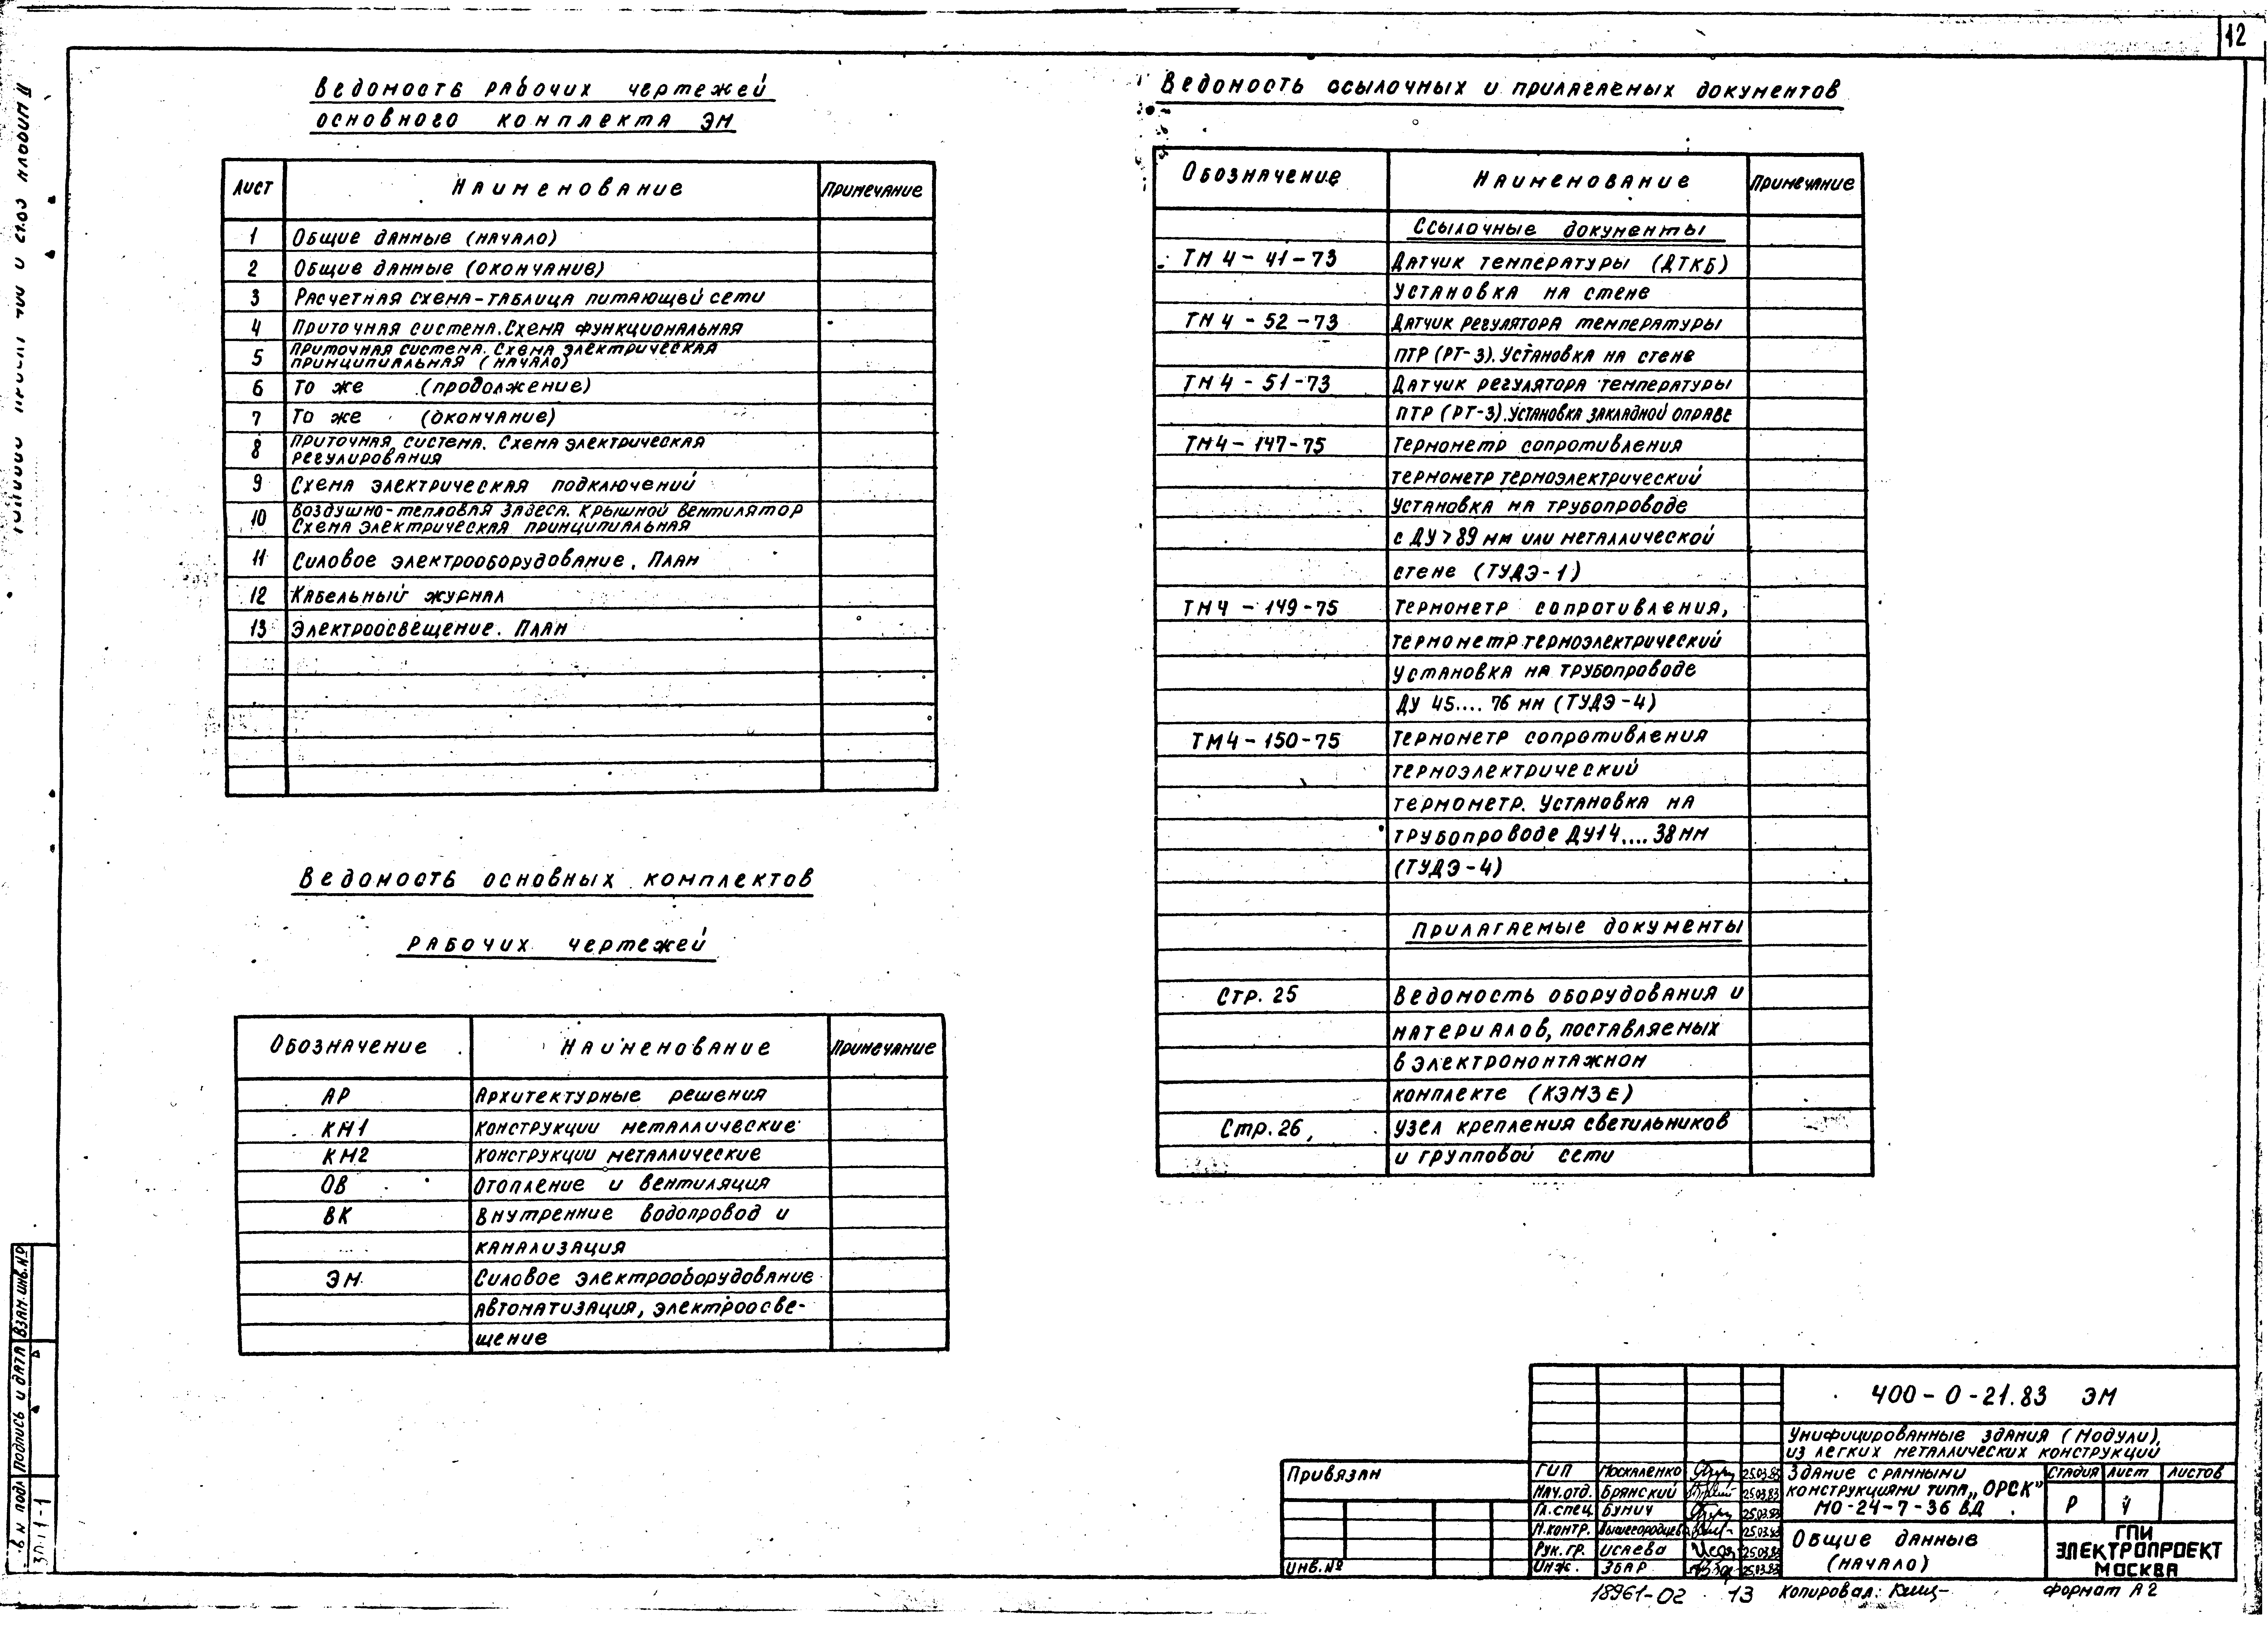 12
Ведомость рабочих чертежей
основного комплекта ЭМ
Лист Наименование Примечание
1 Общие данные (начало)
2 Общие данные (окончание)
3 Расчетная схема-таблица питающей сети
4 Приточная система. Схема функциональная
5 Приточная система. Схема электрическая
принципиальная (начало)
6 То же (продолжение)
7 То же (окончание)
8 Приточная система. Схема электрическая
регулирования
9 Схема электрическая подключений
10 Воздушно-тепловая завеса. Крышной вентилятор
Схема электрическая принципиальная
11 Силовое электрооборудование. План
12 Кабельный журнал
13 Электроосвещение. План
Ведомость основных комплектов
рабочих чертежей
Обозначение Наименование Примечание
АР Архитектурные решения
КМ1 Конструкции металлические
КМ2 Конструкции металлические
ОВ Отопление и вентиляция
ВК Внутренние водопровод и
канализация
ЭМ Силовое электрооборудование
автоматизация, электроосве-
щение
Ведомость ссылочных и прилагаемых документов
Обозначение Наименование Примечание
Ссылочные документы
ТМ 4-41-73 Датчик температуры (ДТКБ)
установка на стене
ТМ 4-52-73 Датчик регулятора температуры
ПТР (РТ-3). Установка на стене
ТМ 4-51-73 Датчик регулятора температуры
ПТР (РТ-3). Установка закладной оправе
ТМ4-147-75 Термометр сопротивления
термометр термоэлектрический
установка на трубопроводе
с ДУ > 89 мм или металлической
стене (ТУДЭ-1)
ТМ4-149-75 Термометр сопротивления,
термометр термоэлектрический
установка на трубопроводе
ДУ 45.... 76 мм (ТУДЭ-4)
ТМ4-150-75 Термометр сопротивления
термоэлектрический
термометр. Установка на
трубопроводе ДУ14.... 38 мм
(ТУДЭ-4)
Прилагаемые документы
Стр. 25 Ведомость оборудования и
материалов, поставляемых
в электромонтажном
комплекте (КЭМЗЕ)
Стр. 26, Узел крепления светильников
и групповой сети
Взам. инв. №
Подпись и дата
400-0-21.83 ЭМ
Унифицированные здания (модули),
из легких металлических конструкций
Здание с рамными
конструкциями типа „ОРСК"
МО-24-7-36 ВД
Стадия Лист Листов
Р
Общие данные
(начало)
ГПИ
ЭЛЕКТРОПРОЕКТ
МОСКВА
Привязан
Инв. №
ГИП Москаленко 25.03.83
Нач. отд. Брянский 25.03.83
Гл. спец. Бунич 25.03.83
Н. контр. Вышегородцева 25.03.83
Рук. гр. Исаева 25.03.83
Инж. Эбар 25.03.83
18961-02 13 Копировал: формат А2